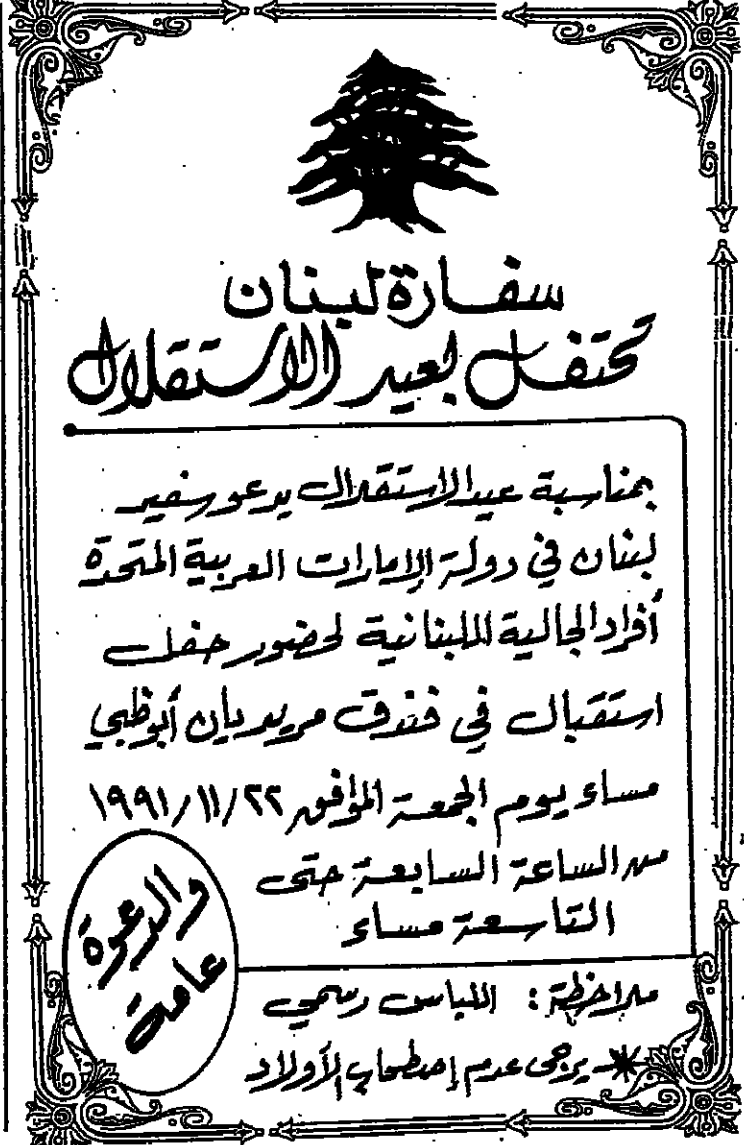 سفارة لبنان
تحتفل بعيد الاستقلال
بمناسبة عيد الاستقلال يدعو سفير
لبنان في دولة الإمارات العربية المتحدة
أفراد الجالية اللبنانية لحضور حفل
استقبال في فندق مريديان أبوظبي
مساء يوم الجمعة الموافق ٢٢/١١/١٩٩١
من الساعة السابعة حتى
التاسعة مساء
والدعوة
عامة
ملاحظة: اللباس رسمي
* يرجى عدم إصطحاب الأولاد